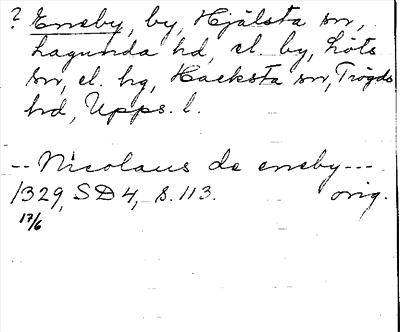 ? Enneby, by, Hjälsta sn,
Lagunda hd, el. by, Löts
sn, el. hg, Hacksta sn, Trögds
hd, Upps. l.
-- Nicolaus de enneby ---
1329, SD 4, s. 113. orig.
17/6